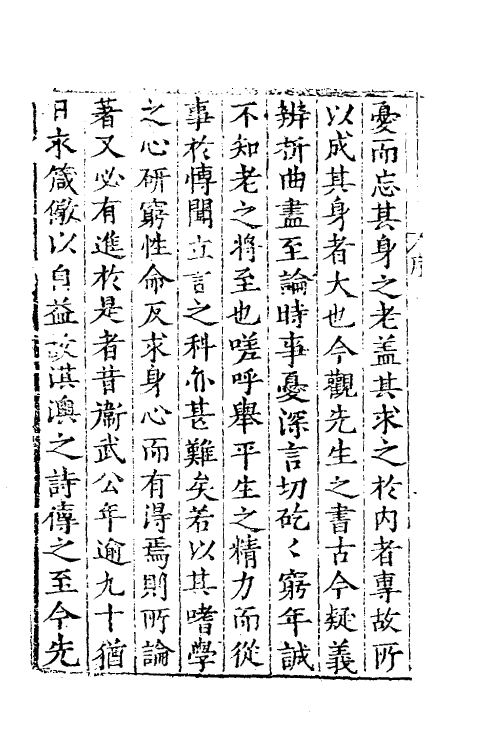 憂而忘其身之老盖其求之於内者專故所
以成其身者大也今觀先生之書古今疑義
辨析曲盡至論時事憂深言切矻〻窮年誠
不知老之將至也嗟呼舉平生之精力而從
事於博聞立言之科亦甚難矣若以其嗜學
之心研窮性命反求身心而有得焉則所論
著又必有進於是者昔衞武公年逾九十猶
日求箴儆以自益故淇澳之詩傳之至今先
序